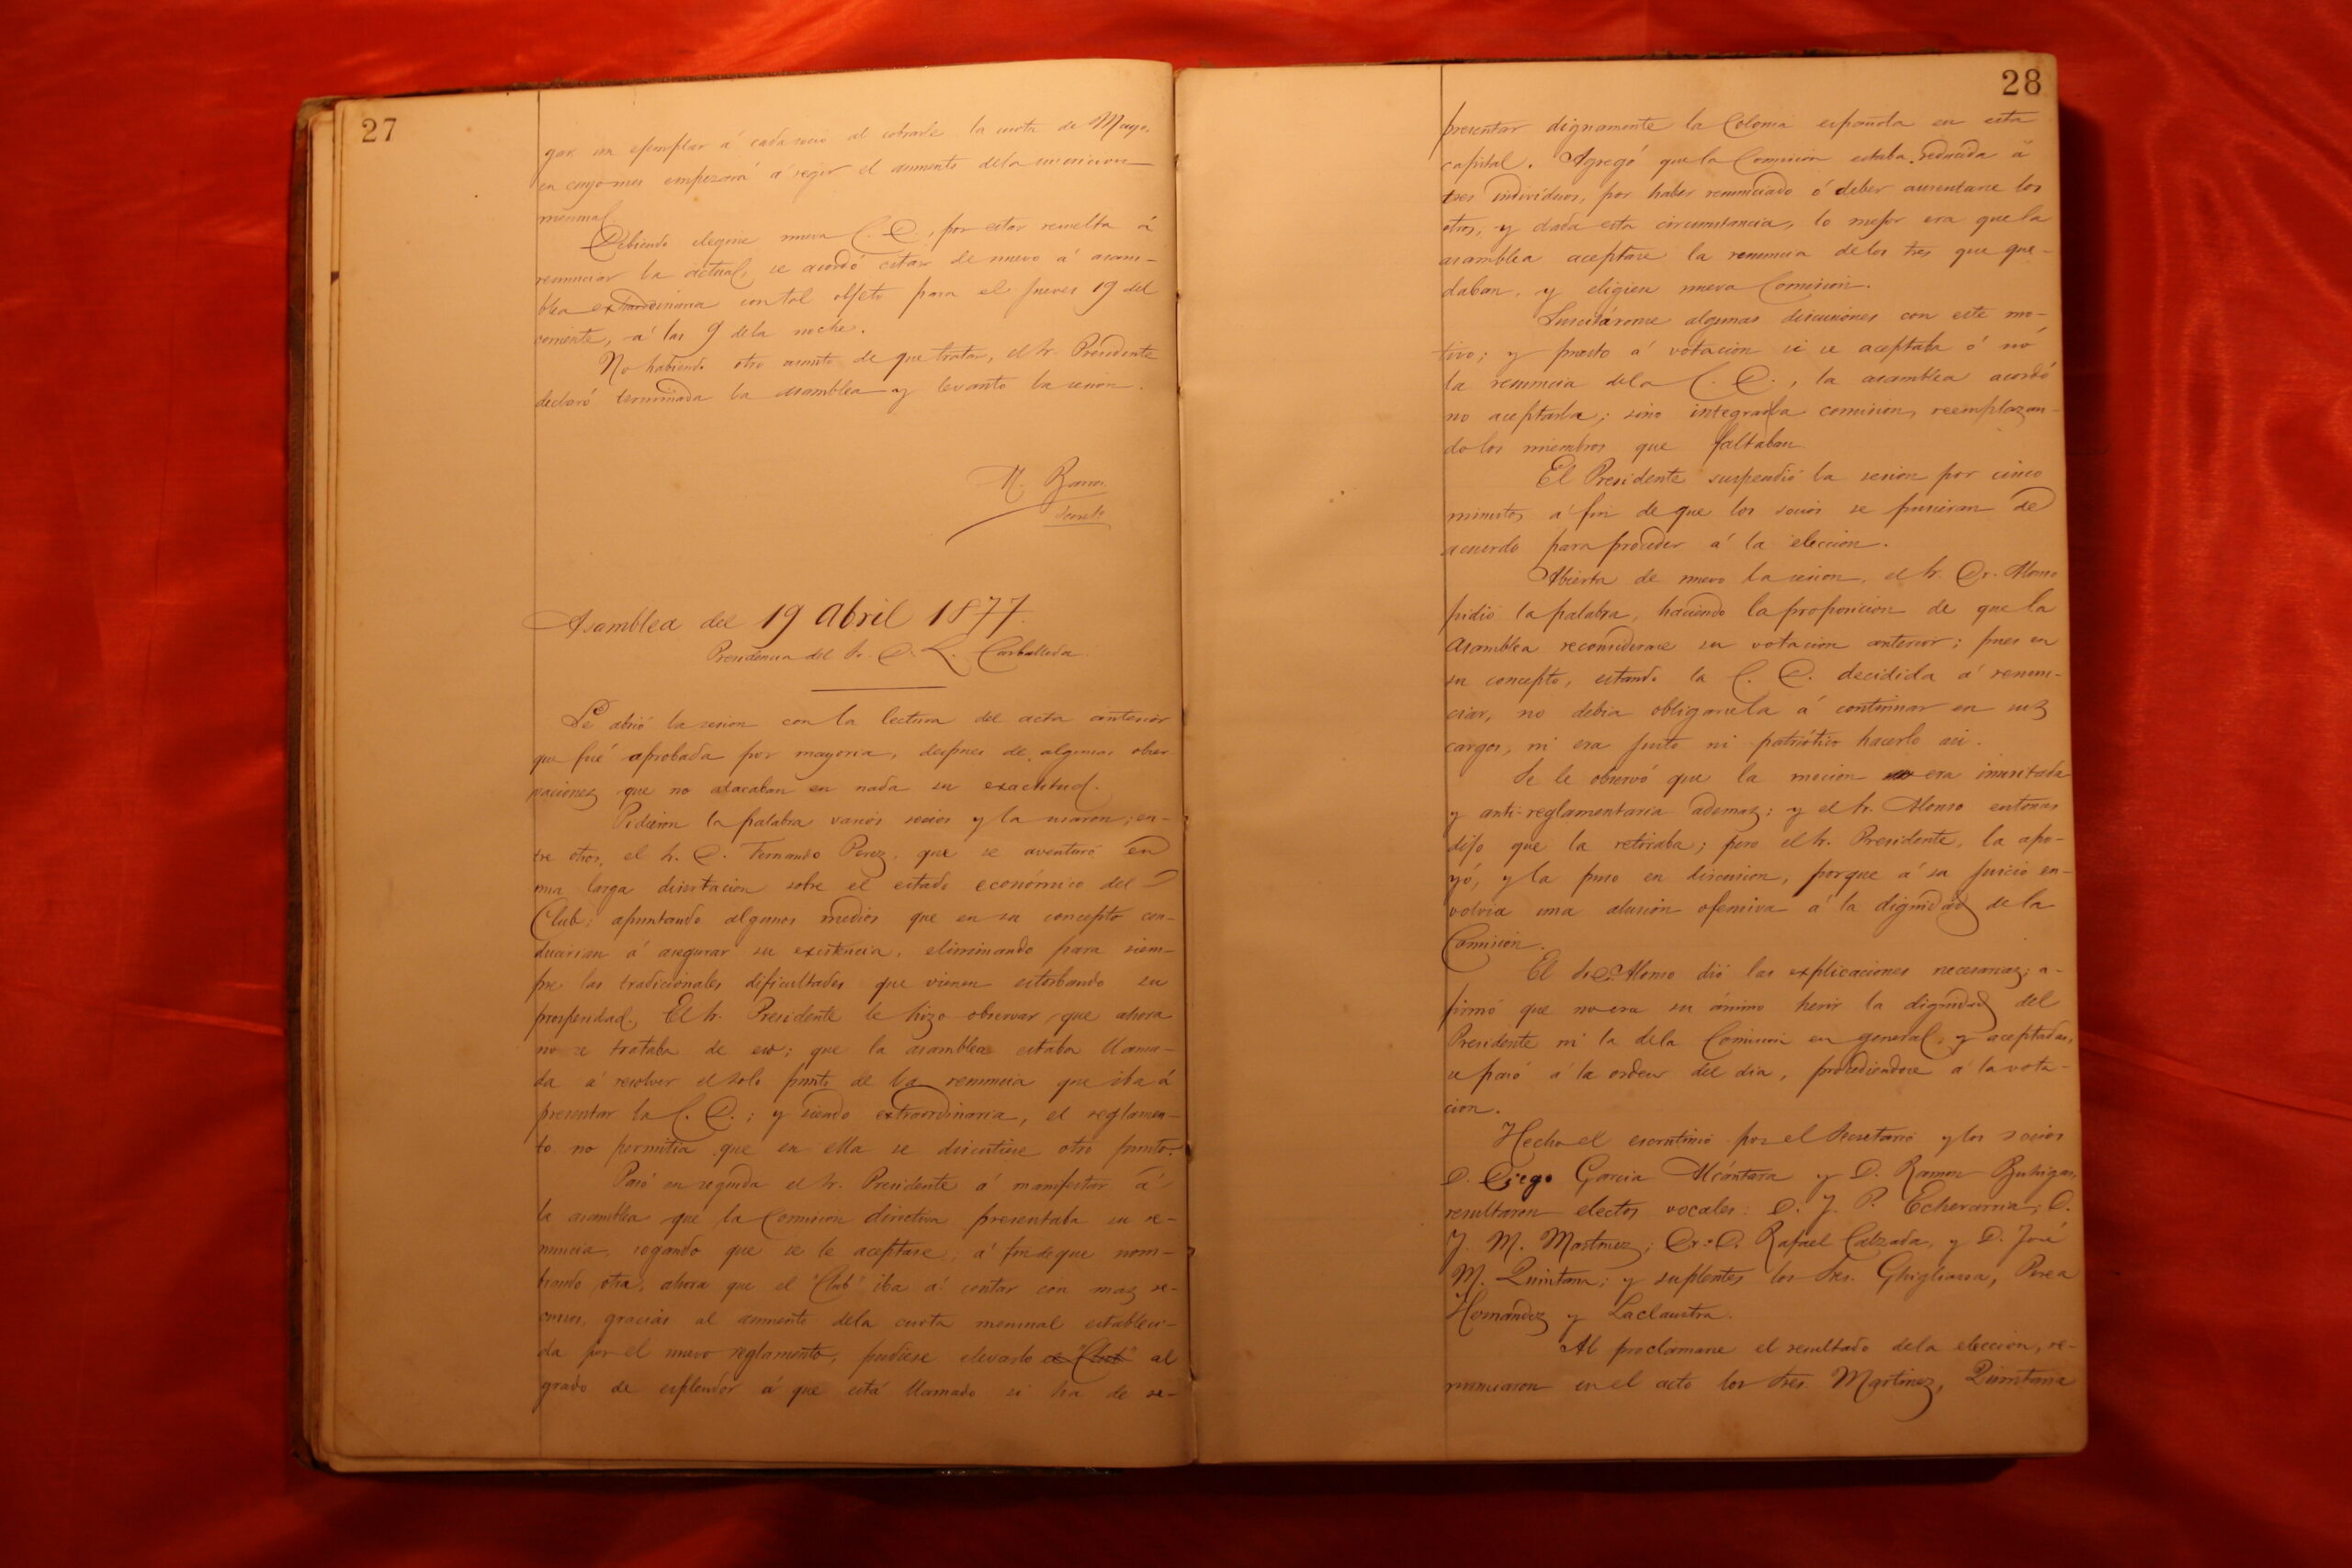 27
gar un ejemplar á cada socio al cobrarle la cuota de Mayo,
en cuyo mes empezará á regir el aumento de la suscricion
mensual.
Debiendo elegirse nueva C. D., por estar resuelta á
renunciar la actual, se acordó citar de nuevo á asam-
blea extraordinaria con tal objeto para el jueves 19 del
corriente, á las 9 de la noche.
No habiendo otro asunto de que tratar, el Sr. Presidente
declaró terminada la asamblea y levantó la sesion.
M. Barros
Secret.
Asamblea del 19 Abril 1877.
Presidencia del Sr. D. L. Carballeda
Se abrió la sesion con la lectura del acta anterior
que fué aprobada por mayoria, despues de algunas obser
vaciones que no atacaban en nada su exactitud.
Pidieron la palabra varios socios y la usaron; en-
tre otros, el Sr. D. Fernando Perez, que se aventuró en
una larga disertacion sobre el estado económico del
Club; apuntando algunos medios que en su concepto con-
ducirian á asegurar su existencia, eliminando para siem-
pre las tradicionales dificultades que vienen estorbando su
prosperidad. El Sr. Presidente le hizo observar, que ahora
no se trataba de eso; que la asamblea estaba llama-
da á resolver el solo punto de la renuncia que iba á
presentar la C. D.; y siendo extraordinaria, el reglamen-
to no permitia que en ella se discutiese otro punto.
Pasó en seguida el Sr. Presidente á manifestar á
la asamblea que la Comision directiva presentaba su re-
nuncia, rogando que se le aceptase, á fin de que nom-
brando otra, ahora que el "Club" iba á contar con mas re-
cursos, gracias al aumento de la cuota mensual estableci-
da por el nuevo reglamento, pudiese elevarlo el "Club" al
grado de esplendor á que está llamado si ha de re-
28
presentar dignamente la Colonia española en esta
capital. Agregó que la Comision estaba reducida á
tres individuos, por haber renunciado ó deber ausentarse los
otros, y dada esta circunstancia, lo mejor era que la
asamblea aceptase la renuncia de los tres que que-
daban, y eligiera nueva Comision.
Suscitáronse algunas discusiones con este mo-
tivo; y puesto á votacion si se aceptaba ó nó
la renuncia de la C. D., la asamblea acordó
no aceptarla; sino integrar la comision, reemplazan-
do los miembros que faltaban.
El Presidente suspendió la sesion por cinco
minutos, á fin de que los socios se pusieran de
acuerdo para proceder á la eleccion.
Abierta de nuevo la sesion, el Sr. Dr. Alonso
pidió la palabra, haciendo la proposicion de que la
Asamblea reconsiderase su votacion anterior; pues en
su concepto, estando la C. D. decidida á renun-
ciar, no debia obligársela á continuar en sus
cargos, ni era justo ni patriótico hacerlo asi.
Se le observó que la mocion era inusitada
y anti-reglamentaria ademas; y el Sr. Alonso entonces
dijo que la retiraba; pero el Sr. Presidente, la apo-
yó, y la puso en discusion, porque á su juicio en-
volvia una alusion ofensiva á la dignidad de la
Comision.
El Sr. Dr. Alonso dió las explicaciones necesarias; a-
firmó que no era su ánimo herir la dignidad del
Presidente ni la de la Comision en general, y aceptadas,
se pasó á la orden del dia, procediendose á la vota-
cion.
Hecho el escrutinio por el Secretario y los socios
D. Diego Garcia Alcántara y D. Ramon
resultaron electos vocales: D. J. P. Echevarria; D.
J. M. Martinez; Dr. D. Rafael Calzada, y D. José
M. Quintana; y suplentes los Sres. Ghigliazza, Perea
Hernandez y Laclaustra.
Al proclamarse el resultado de la eleccion, re-
nunciaron en el acto los Sres. Martinez, Quintana